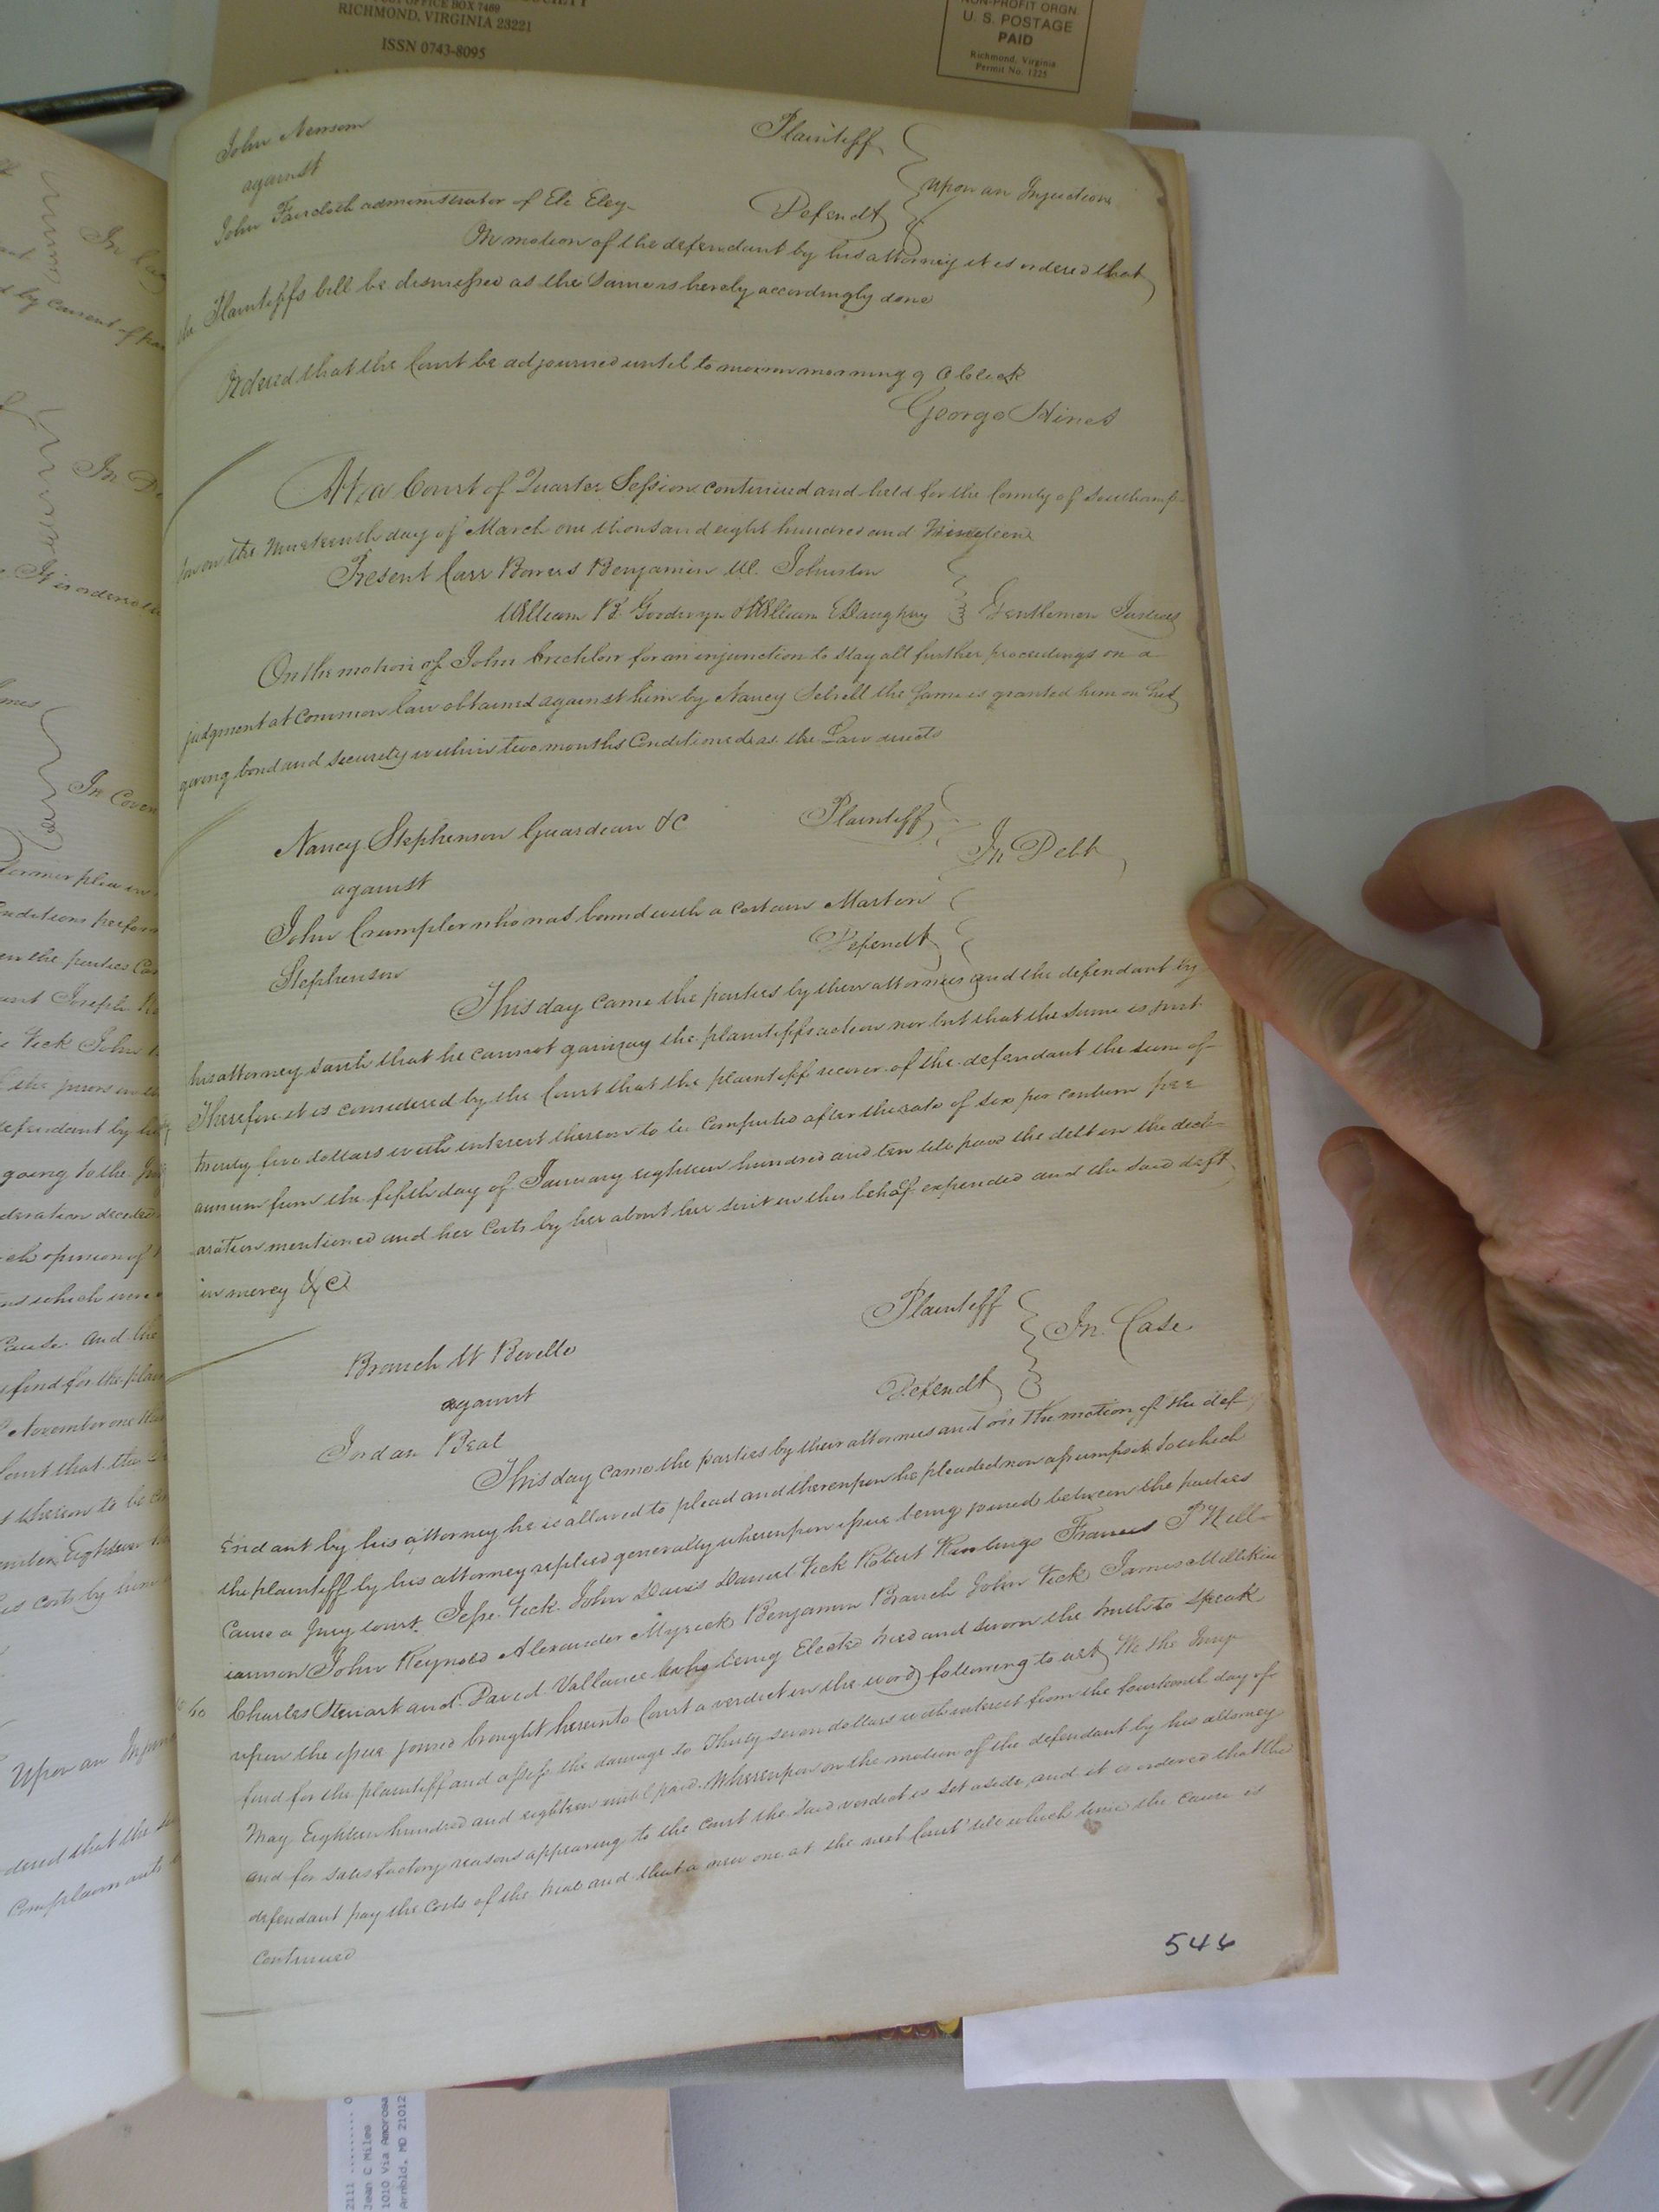 POST OFFICE BOX 7469
RICHMOND, VIRGINIA 23221
ISSN 0743-8095
NON-PROFIT ORGN.
U. S. POSTAGE
PAID
Richmond, Virginia
Permit No. 1225
John Newsom Plaintiff
against upon an Injunction
John Faircloth administrator of Eli Eley Defendt
On motion of the defendant by his attorney it is ordered that
the Plaintiffs bill be dismissed as the same is hereby accordingly done
Ordered that the Court be adjourned until tomorrow morning 9 Oclock
George Hines
At a Court of Quarter Session continued and held for the County of Southamp-
ton on the Nineteenth day of March one thousand eight hundred and Nineteen
Present Carr Bowers Benjamin W. Johnston
William B. Goodwyn & William E Daughtry Gentlemen Justices
On the motion of John Crichlow for an injunction to stay all further proceedings on a
judgment at Common law obtained against him by Nancy Sebrell the same is granted him on his
giving bond and security within two months Conditioned as the Law directs
Nancy Stephenson Guardian &C Plaintiff
against In Debt
John Crumpler who was bound with a certain Martin
Stephenson Defendt
This day came the parties by their attornies and the defendant by
his attorney saith that he cannot gainsay the plaintiffs action nor but that the same is just
Therefore it is considered by the Court that the plaintiff recover of the defendant the sum of
twenty five dollars with interest thereon to be computed after the rate of six per centum per
annum from the fifth day of January eighteen hundred and ten till paid the debt in the decl-
aration mentioned and her Costs by her about her suit in this behalf expended and the said deft
in mercy &C
Branch W Bevelle Plaintiff
against In Case
Jordan Beal Defendt
This day came the parties by their attornies and on the motion of the def
endant by his attorney he is allowed to plead and thereupon he pleaded non assumpsit to which
the plaintiff by his attorney replied generally whereupon issue being joined between the parties
Came a Jury towit. Jesse Vick John Davis Daniel Vick Robert Rawlings Francis P Well-
iamson John Reynolds Alexander Myrick Benjamin Branch John Vick James Millikin
Charles Stewart and David Vallance who being Elected tried and sworn the truth to speak
upon the issue joined brought here into Court a verdict in the words following to wit We the Jury
find for the plaintiff and assess the damage to Thirty seven dollars with interest from the fourteenth day of
May Eighteen hundred and eighteen until paid. Whereupon on the motion of the defendant by his attorney
and for satisfactory reasons appearing to the Court the said verdict is set aside, and it is ordered that the
defendant pay the costs of the trial and that a new one at the next Court till which time the cause is
Continued
546
In Cov
Upon an Injun
Jean C Miles
1010 Via Amorosa
Arnold, MD 21012